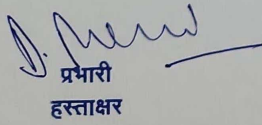 प्रभारी
हस्ताक्षर